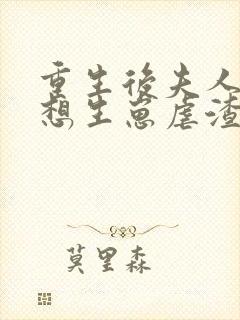 重生後夫人
想生崽虐渣
莫里森